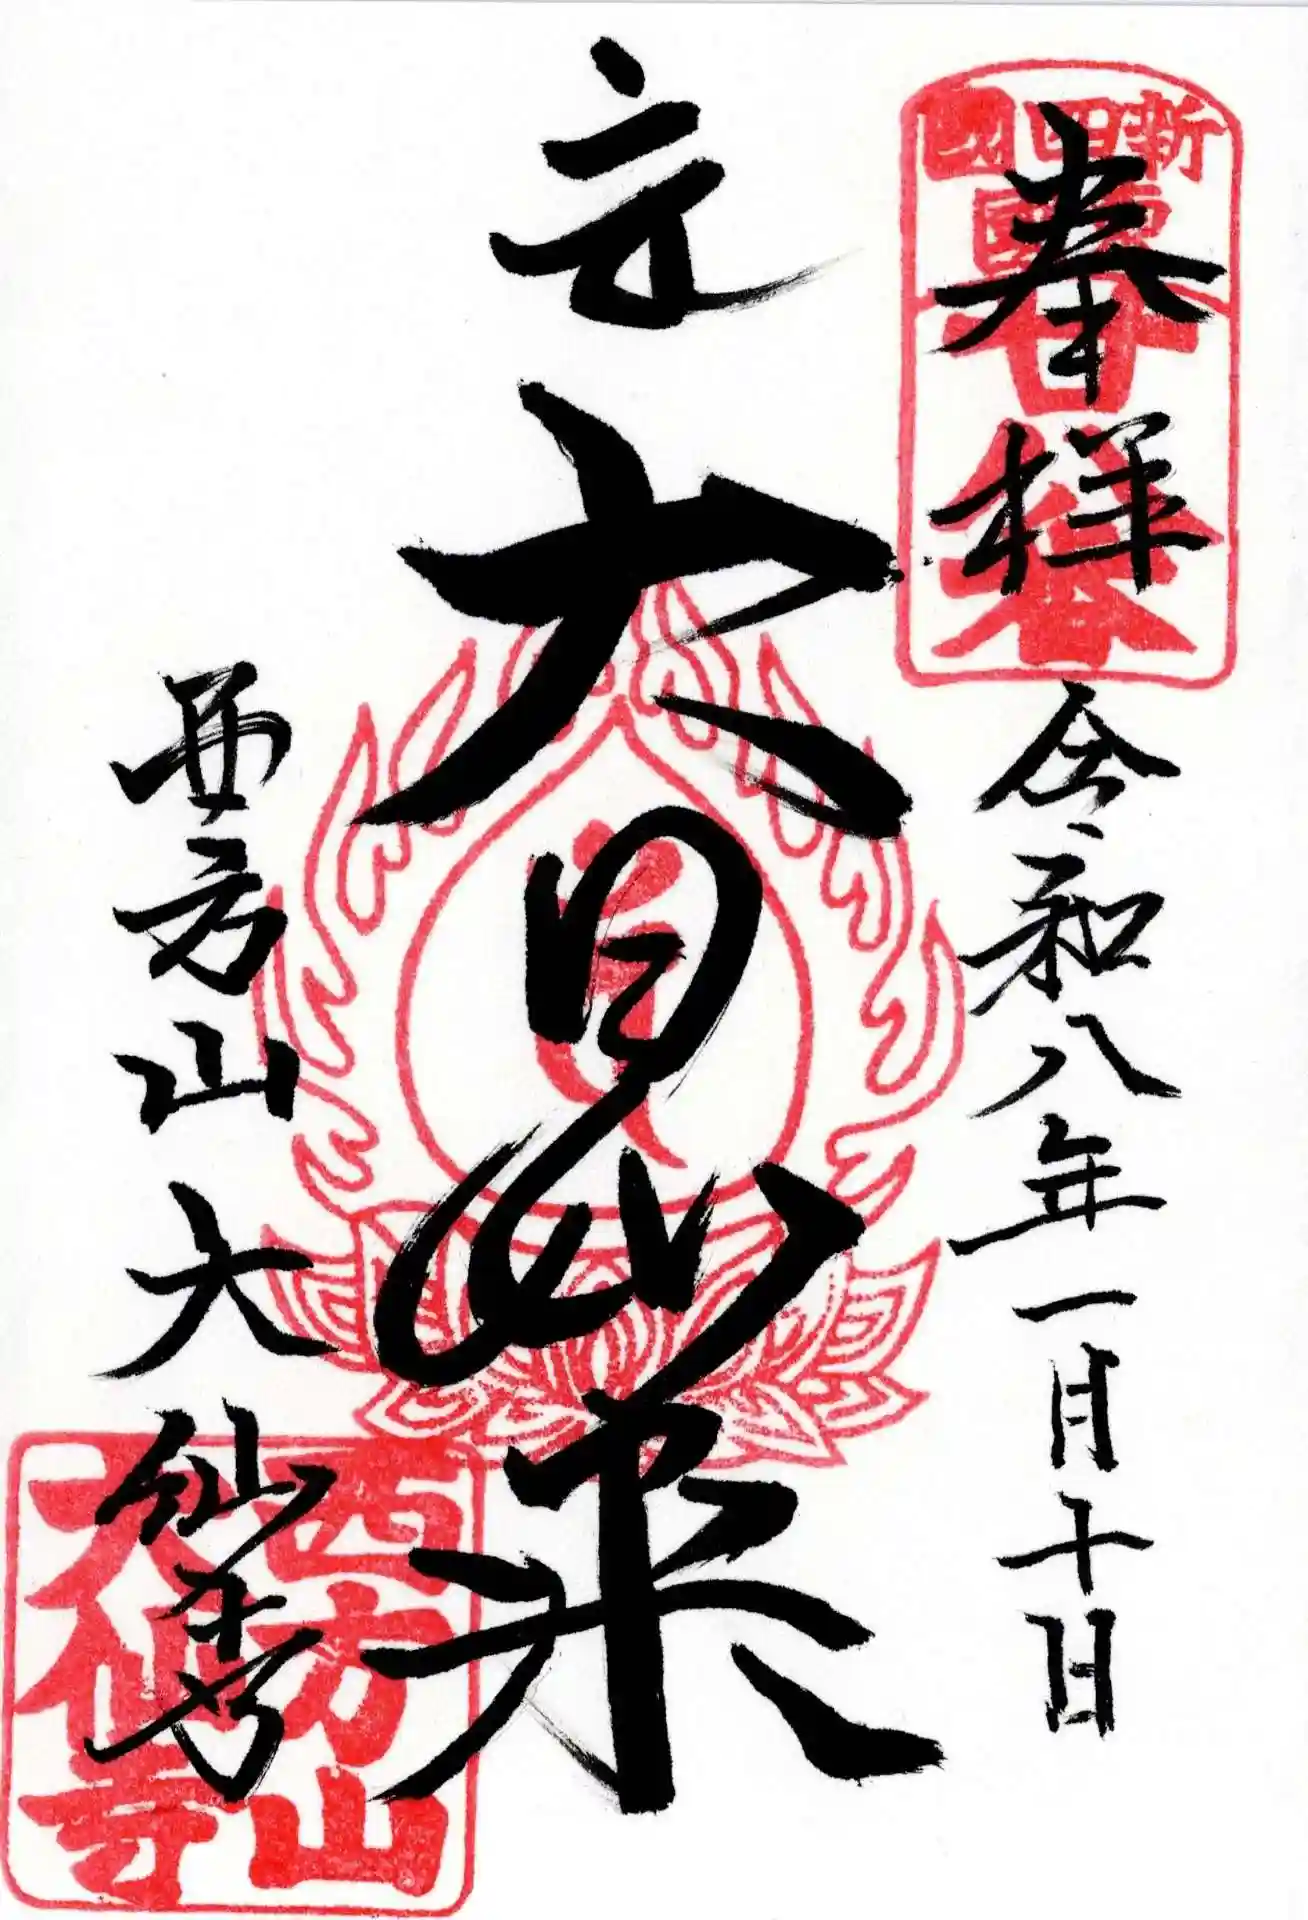 新四國
奉拝
令和八年一月十日
大日如来
西方山大仙寺
西方山
大仙寺